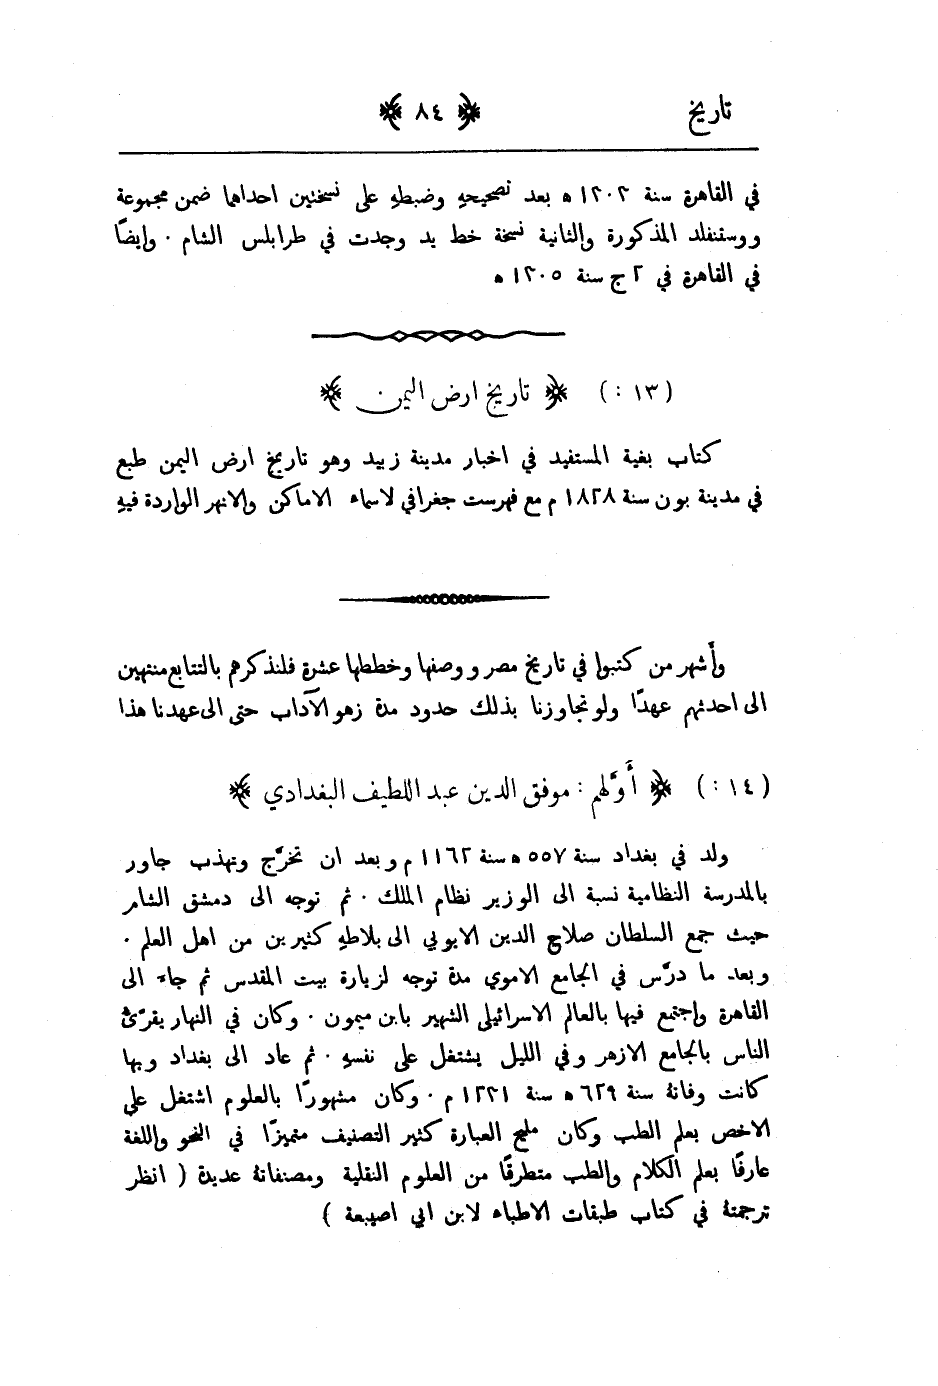 تاريخ ﴿ ٨٤ ﴾
في القاهرة سنة ١٣٠٣ ه بعد تصحيحهِ وضبطهِ على نسختين احداها ضمن مجموعة
ووستنفلد المذكورة والثانية نسخة خط يد وجدت في طرابلس الشام . وايضًا
في القاهرة في ٢ ج سنة ١٣٠٥ ه
(١٣ :) ﴿ تاريخ ارض اليمن ﴾
كتاب بغية المستفيد في اخبار مدينة زبيد وهو تاريخ ارض اليمن طبع
في مدينة بون سنة ١٨٢٨ م مع فهرست جغرافي لاسماء الاماكن والانهر الواردة فيهِ
وأَشهر من كتبوا في تاريخ مصر ووصفها وخططها عشرة فلنذكرهم بالتتابع منتهين
الى احدثهم عهدًا ولو تجاوزنا بذلك حدود مدة زهو الآداب حتى الى عهدنا هذا
(١٤ :) ﴿ أَوَّلهم : موفق الدين عبد اللطيف البغدادي ﴾
ولد في بغداد سنة ٥٥٧ ه سنة ١١٦٢ م وبعد ان تخرَّج وتهذب جاور
بالمدرسة النظامية نسبة الى الوزير نظام الملك . ثم توجه الى دمشق الشام
حيث جمع السلطان صلاح الدين الايوبي الى بلاطهِ كثيرين من اهل العلم .
وبعد ما درَّس في الجامع الاموي مدة توجه لزيارة بيت المقدس ثم جاء الى
القاهرة واجتمع فيها بالعالم الاسرائيلي الشهير بابن ميمون . وكان في النهار يقرّئ
الناس بالجامع الازهر وفي الليل يشتغل على نفسهِ . ثم عاد الى بغداد وبها
كانت وفاتهُ سنة ٦٢٩ ه سنة ١٢٣١ م . وكان مشهورًا بالعلوم اشتغل على
الاخص بعلم الطب وكان مليح العبارة كثير التصنيف متميزًا في النحو واللغة
عارفًا بعلم الكلام والطب متطرقًا من العلوم النقلية ومصنفاتهُ عديدة ( انظر
ترجمتهُ في كتاب طبقات الاطباء لابن ابي اصيبعة )